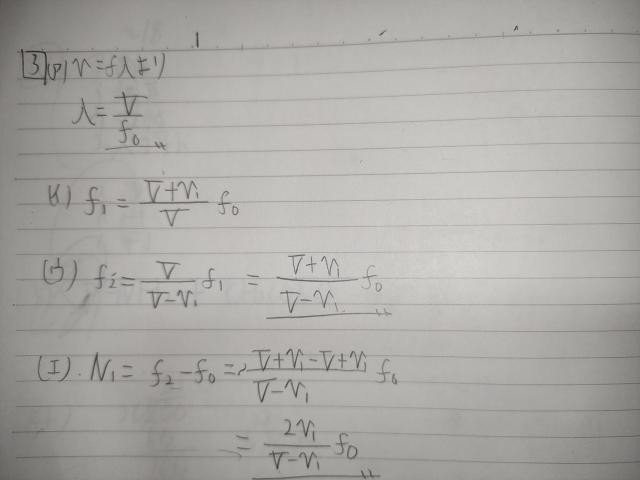 3 (ア) v=fλより
λ=V/f₀
(イ) f₁ = (V+v₁)/V f₀
(ウ) f₂ = V/(V−v₁) f₁ = (V+v₁)/(V−v₁) f₀
(エ). N₁ = f₂−f₀ = (V+v₁−V+v₁)/(V−v₁) f₀
= 2v₁/(V−v₁) f₀